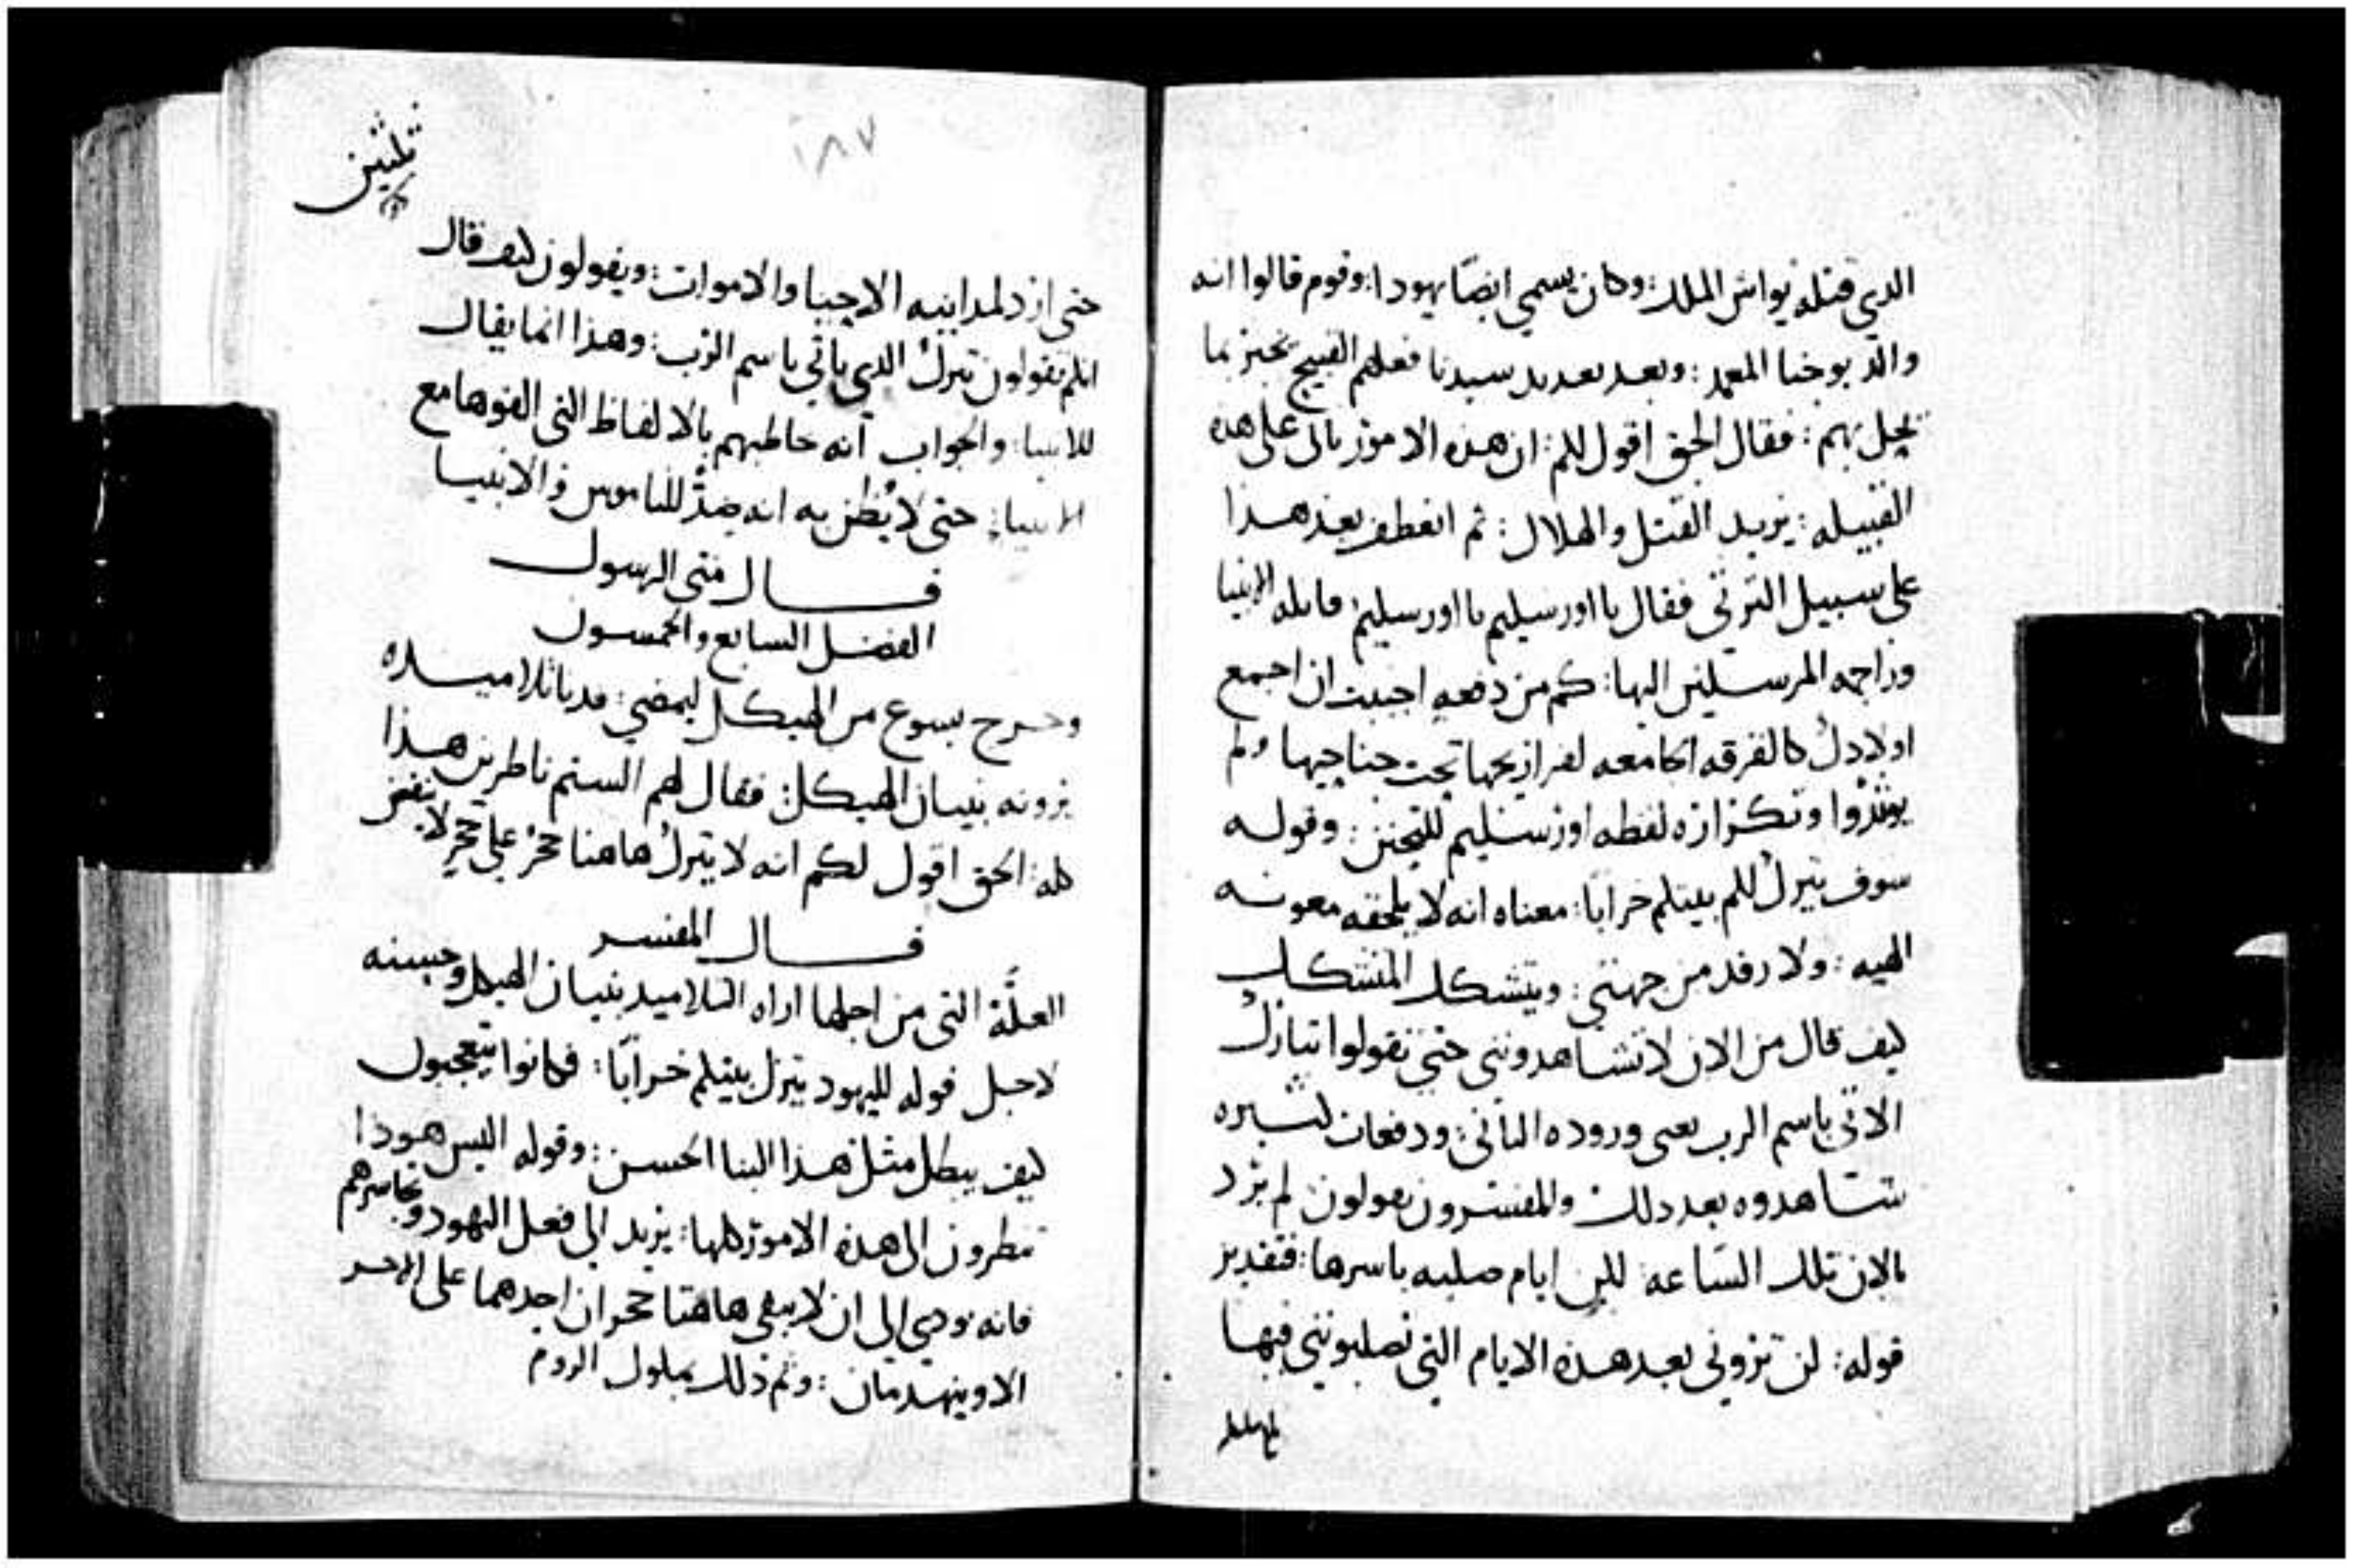 الذي قتله يواش الملك: وكان يسمي ايضًا يهودا: وقوم قالوا انه
والد يوحنا المعمد: وبعد تعديد سيدنا فعلهم القبيح يخبر بما
يحل بهم: فقال الحق اقول لكم: ان هذه الامور تاتى على هذه
القبيله: يريد القتل والهلاك: ثم انعطف بعد هذا
على سبيل الترثي فقال يا اورسليم يا اورسليم قاتله الانبيا
وراجمه المرسلين اليها: كم من دفعه احببت ان اجمع
اولادك كالفرقه الجامعه لفراريجها تحت جناحيها ولم
يوثروا وتكراره لفظه اورسليم للتحنن: وقوله
سوف يترك لكم بيتكم خرابًا: معناه انه لا يلحقه معونه
الهيه: ولا رفد من جهتي: ويتشكك المتشكك
كيف قال من الان لا تشاهدونني حتى تقولوا تبارك
الاتي باسم الرب يعنى وروده الثاني: ودفعات كثيره
شاهدوه بعد ذلك والمفسرون يقولون لم يرد
بالان تلك الساعه: لكن ايام صلبه باسرها: فتقدير
قوله: لن تروني بعد هذه الايام التي تصلبونني فيها
١٨٧
ثلثين
حتى ازد لمداينه الاحيا والاموات: ويقولون كيف قال
انكم تقولون تبرك الذي ياتي باسم الرب: وهذا انما يقال
للانبيا: والجواب انه خاطبهم بالالفاظ التي الفوها مع
الانبيا: حتى لا يُظن به انه ضدٌ للناموس والانبيا
قال متى الرسول
الفصل السابع والخمسون
وخرج يسوع من الهيكل ليمضي: فدنا تلاميذه
يرونه بنيان الهيكل: فقال لهم الستم ناظرين هذا
كله: الحق اقول لكم انه لا يترك هاهنا حجرٌ على حجرٍ لا ينقض
قال المفسر
العلَّة التي من اجلها اراه التلاميذ بنيان الهيكل وحسنه
لاجل قوله لليهود يترك بيتكم خرابًا: فكانوا يتعجبون
كيف يبطل مثل هذا البنا الحسن: وقوله اليس هوذا
تنظرون الى هذه الامور كلها: يريد الى فعل اليهود وتجاسرهم
فانه يودي الى ان لا يبقى هاهنا حجران احدهما على الاخر
الا وينهدمان: وتم ذلك بملوك الروم